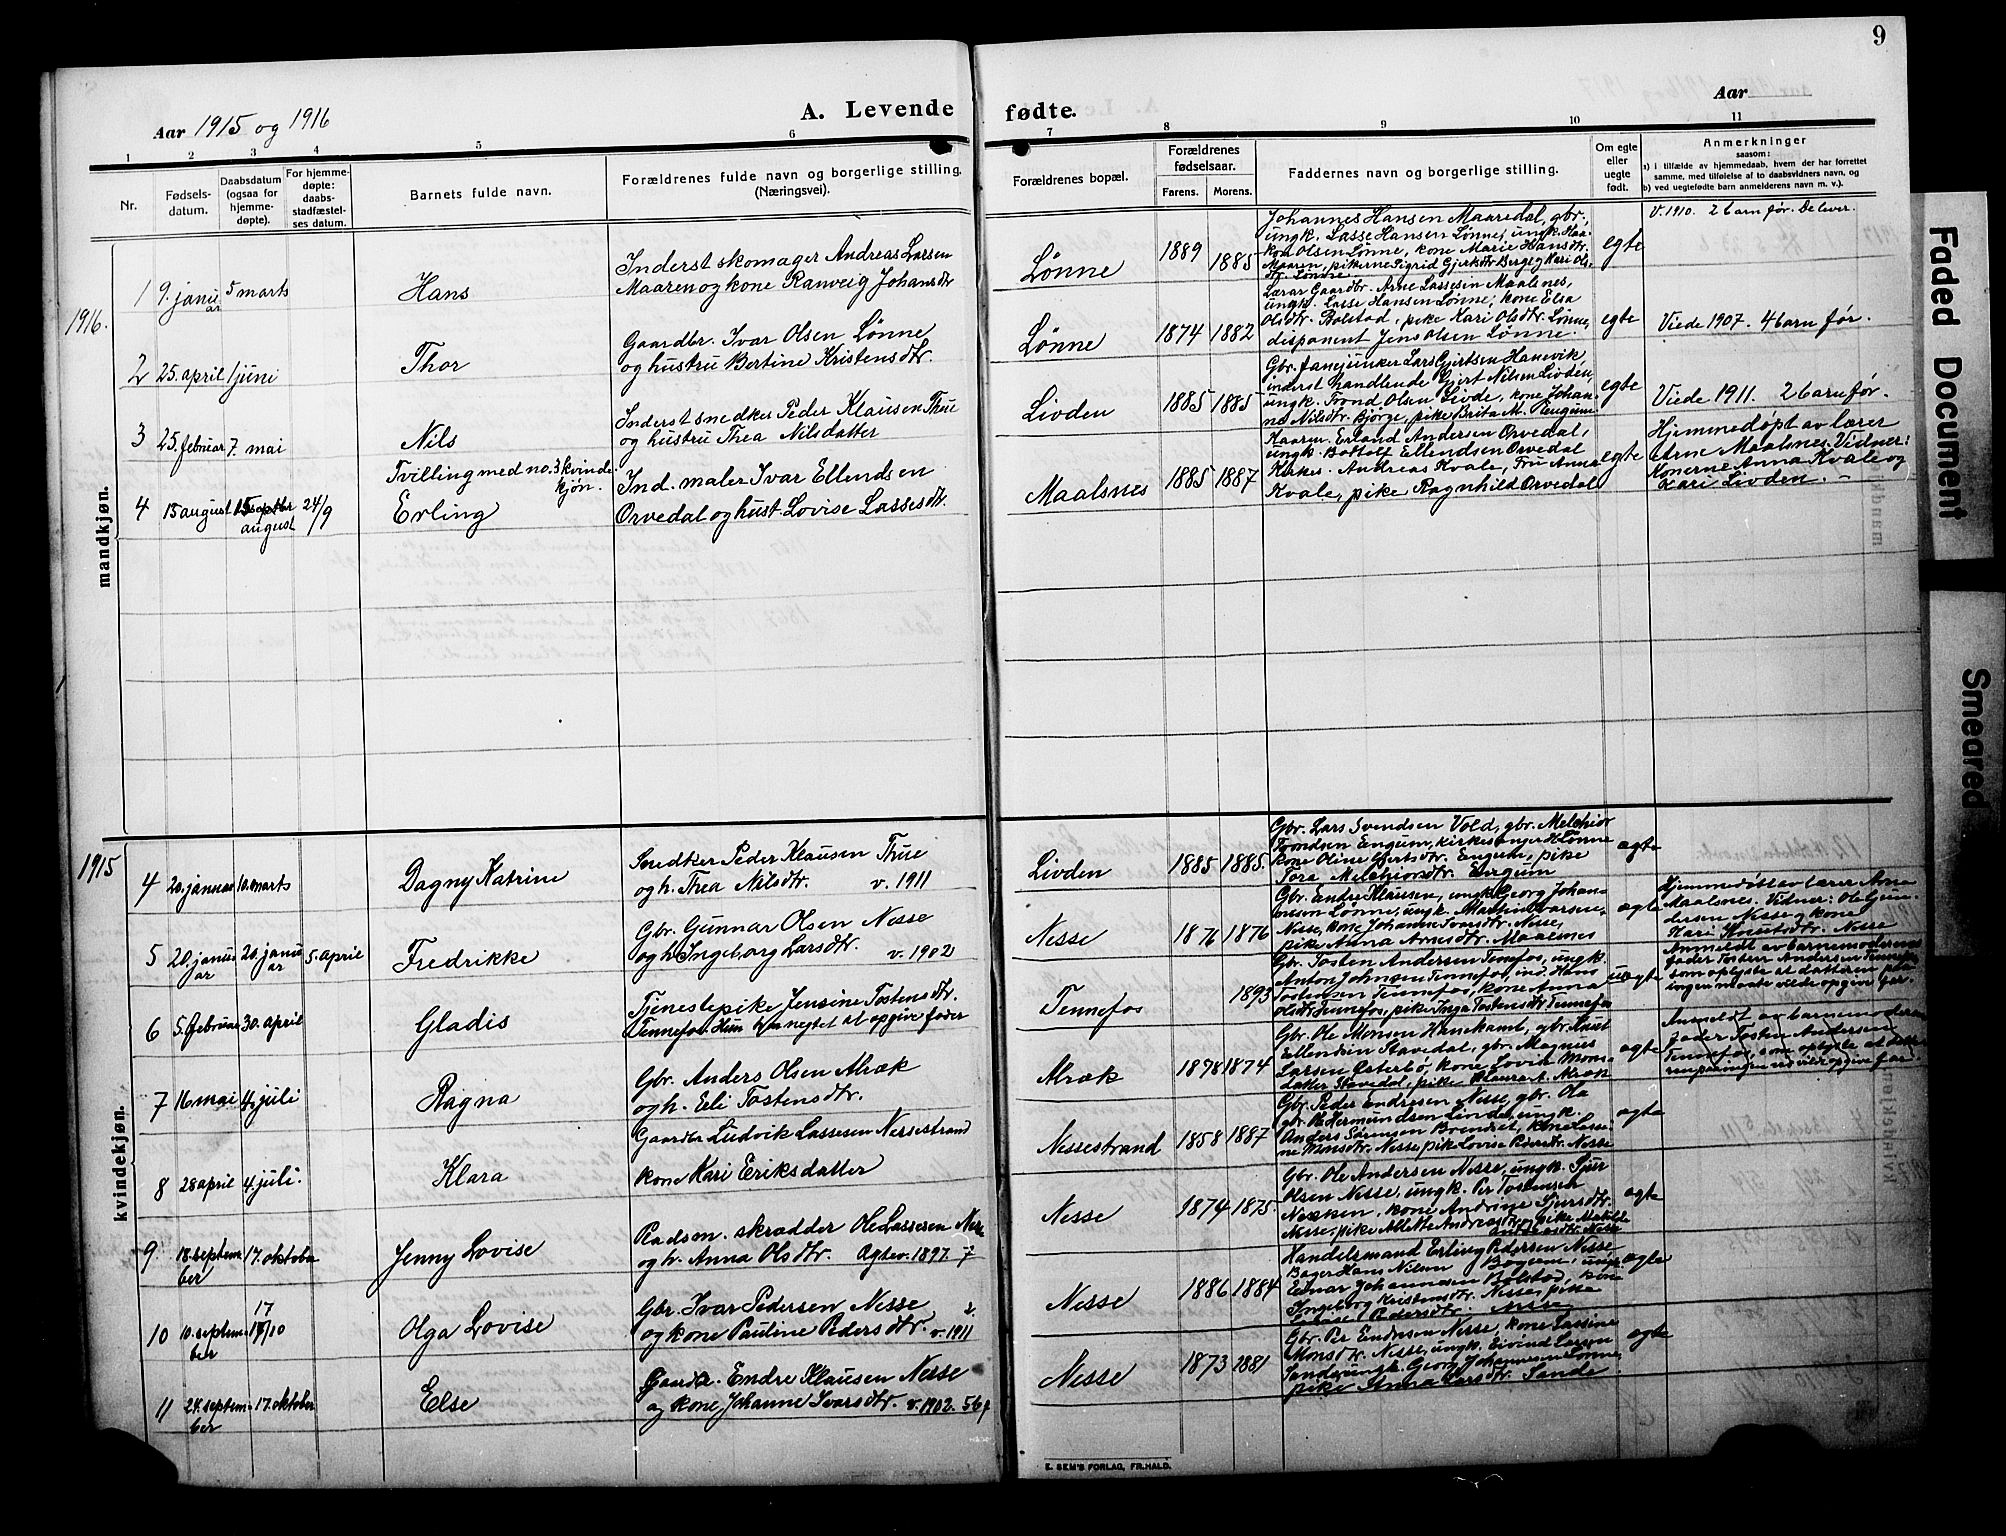 9
Aar 1915 og 1916
A. Levende fødte.
Aar
1 2 3 4 5 6 7 8 9 10 11
Nr.
Fødsels-
datum.
Daabsdatum
(ogsaa for
hjemme-
døpte).
For hjemme-
døpte:
daabs-
stadfæstel-
ses datum.
Barnets fulde navn.
Forældrenes fulde navn og borgerlige stilling.
(Næringsvei).
Forældrenes bopæl.
Forældrenes
fødselsaar.
Farens. Morens.
Faddernes navn og borgerlige stilling.
Om egte
eller
uegte
født.
Anmerkninger
saasom:
a) i tilfælde av hjemmedaab, hvem der har forrettet
samme, med tilføielse af to daabsvidners navn, og
b) ved uegtefødte barn anmelderens navn m. v.).
1916.
mandkjøn.
1 9. janu
ar
5 marts
Hans
Inderst skomager Andreas Larsen
Maaren og kone Ranveig Johansdtr
Lønne
1889 1885
Johannes Hansen Maaredal, gbr.,
ungk. Lasse Hansen Lønne, ungk. Haa-
kon Olsen Lønne, kone Marie Hansdtr.
Maaren, pikerne Sigrid Gjertsdtr Berge og Kari Ols-
dtr. Lønne
egte
V. 1910. 2 barn før. De lever.
2 25. april 1 juni
Thor
Gaardbr. Ivar Olsen Lønne
og hustru Bertine Kristensdtr.
Lønne
1874 1882
Lærar Gaardbr. Arne Lassesen Maalsnes,
ungk. Lasse Hansen Lønne, kone Elsa
Olsdtr. Bolstad, pike Kari Olsdtr. Lønne,
disponent Jens Olsen Lønne.
egte
Viede 1907. 4 barn før.
3 25. februar 7. mai
Nils
Inderst snedker Peder Klausen Thue
og hustru Thea Nilsdatter
Livden
1885 1885
Gbr. fanejunker Lars Gjertsen Hanevik,
inderst handlende Gjert Nilsen Livden,
ungk. Trond Olsen Livde, kone Johan-
ne Nilsdtr. Bjørge, pike Brita M. Engum
egte
Viede 1911. 2 barn før.
4 15 august
august
24/9
Tvilling med no. 3 kvinde-
kjøn.
Erling
Ind. maler Ivar Ellendsen
Orvedal og hust. Lovise Lassesdtr.
Maalsnes
1885 1887
Erland Andersen Orvedal,
ungk. Botolf Ellendsen Orvedal
Kirkes. Andreas Kvale, Fru Anna
Kvale, pike Ragnhild Orvedal
egte
Hjemmedøpt av lærer
Arne Maalsnes. Vidner:
Konerne Anna Kvale og
Kari Livden. –
1915
kvindekjøn.
4 20. januar 10. marts
Dagny Katrine
Snedker Peder Klausen Thue
og h. Thea Nilsdtr. v. 1911
Livden
1885 1885.
Gbr. Lars Svendsen Vold, gbr. Melchior
Trondsen Engum, kirkesanger H Lønne
kone Oline Gjertsdtr. Engum, pike
Tora Melchiorsdtr. Engum
egte
5 20. janu
ar
20. janu
ar
5. april
Fredrikke
Gbr. Gunnar Olsen Nesse
og h. Ingeborg Larsdtr. v. 1902
Nesse
1876 1876
Gbr. Endre Klausen, ungk. Georg Johan-
nesen Lønne, ungk. Martin Ivarsen,
Nesse, kone Johanne Ivarsdtr. Nesse,
pike Anna Arnesdtr. Maalsnes
egte
Hjemmedøbt av lærer Arne
Maalsnes. Vidner: Ole Gun-
dersen Nesse og kone
Kari Knutsdtr. Nesse
6 5. februar 30. april
Gladis
Tjenestepike Jensine Tostensdtr.
Tennefos. Hun har negtet at opgive fader
Tennefos
1893
Gbr. Tosten Andersen Tennefos, ungk.
Anton Johnsen Tennefos, ind. Hans
Tostensen Tennefos, kone Anna
Olsdtr. Tennefos, pike Inga Tostensdtr. Tennefos
uegte
Anmeldt av barnemoderens
fader Tosten Andersen Tennefos,
som oplyste at datteren paa
ingen maate vilde opgive far.
7 16 mai 4. juli
Ragna
Gbr. Anders Olsen Alræk
og h. Eli Tostensdtr.
Alræk
1878 1874
Gbr. Ole Monsen Hanekamb, gbr. Knut
Ellendsen Stavedal, gbr. Magnus
Larsen Østerbø, kone Lovise Mons-
datter Stavedal, pike Laura A. Alræk
egte
Anmeldt av barnemoderens
fader Tosten Andersen
Tennefos, som oplyste at datte-
8 28 april 4 juli.
Klara
Gaardbr Ludvik Lassesen Nessestrand
kone Kari Eriksdatter
Nessestrand
1858 1887
Gbr. Peder Endresen Nesse, gbr. Ola
gbr. Pedermundsen Linde, ungk.
Anders Sørensen Brendset, kone Lasse-
ne Monsdtr. Nesse, pike Lovise Pedersdtr. Nesse
egte
9 18. septem-
ber
17. oktober
Jenny Lovise
Pladsm. skrædder Ole Lassesen Nesse
og h. Anna Olsdtr. Egtev. 1897. 7
Nesse
1874 1875
Gbr. Ole Andersen Nesse, ungk. Sjur
Olsen Nesse, ungk. Per Tostensen
Nessen, kone Andrine Sjursdtr.
Nesse, pike Alette Andreasdtr og pike Matilde
Andreasdtr. Nesse
egte
10 10. septem-
ber
17
17/10
Olga Lovise
Gbr. Ivar Pedersen Nesse
og kone Pauline Pedersdtr. v. 1911
Nesse
1886 1884
Handelsmand Erling Pedersen Nesse
Bager Hans Nilsen Bogum, ungk.
Einar Johannesen Bolstad, kone
Ingeborg Kristensdtr. Nesse, pike
Pedersdtr. Nesse
egte
11 24. septem-
ber
17. oktober
Else
Gaardbr. Endre Klausen Nesse
og kone Johanne Ivarsdtr. v. 1902. 5 6 f
Nesse
1873 1881
Gbr. Per Endresen Nesse, kone Lassine
Monsdtr. Nesse, ungk. Eivind Larsen
Sande, ungk. Georg Johannesen Lønne,
pike Anna Larsdtr. Sande
egte
E. SEM'S FORLAG, FR.HALD.
Faded Document
Smeared